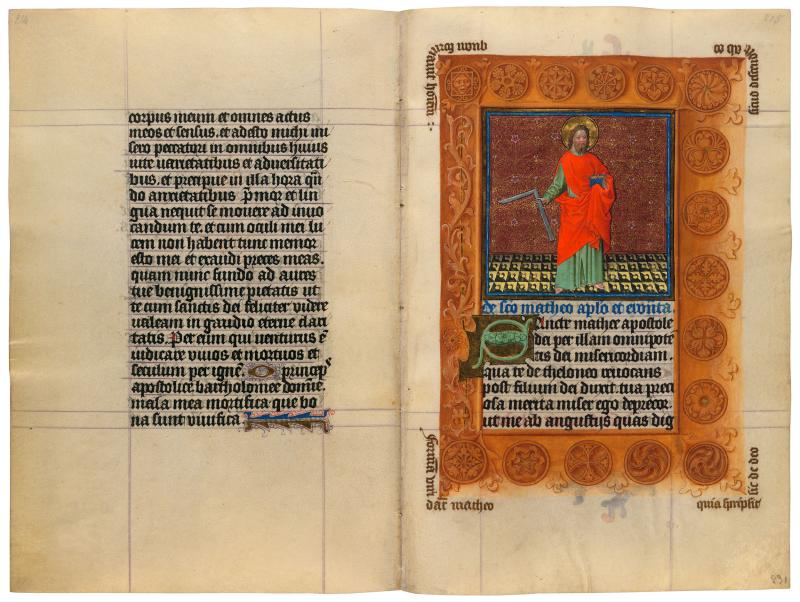 corpus meum et omnes actus
meos et sensus. et adesto michi mi
sero peccatori in omnibus huius
uite uarietatibus et aduersitati
bus. et precipue in illa hora qñ
do anxietatibus p̄mor et lin
gua nequit se mouere ad inuo
candum te. et cum oculi mei lu
cem non habent tunc memor
esto mei et exaudi preces meas.
quam nunc fundo ad aures
tue benignissime pietatis ut
te cum sanctis dei feliciter videre
valeam in gaudio eterne clari
tatis. Per eum qui venturus ē
iudicare viuos et mortuos et
seculum per ignē. O princeps
apostolice bartholomee domine
mala mea mortifica que bo
na sunt viuifica
de sc̄o matheo aplo et
Sancte mathee apostole
dei per illam omnipote
tis dei misericordiam.
qua te de theloneo reuocans
post filium dei duxit. tua preci
osa merita miser ego deprecor.
ut me ab angustijs quas dig
dat matheo
quia scripsit
sic de deo
sicud